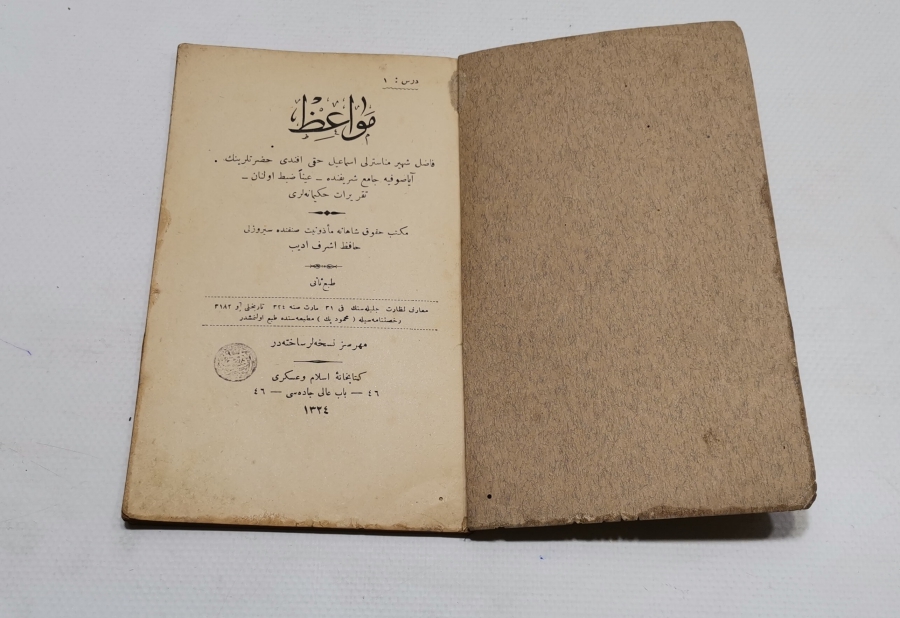 درس : ١
مواعظ
فاضل شهیر مناسترلی اسماعیل حقی افندی حضرتلرینك
آیاصوفیه جامع شریفنده – عیناً ضبط اولنان –
تقریرات حکیمانه‌لری
مکتب حقوق شاهانه مأذونیت صنفنده سیروزلی
حافظ اشرف ادیب
طبع ثانی
معارف نظارت جلیله‌سنك فی ٣١ مارت سنه ٣٢٤ تاریخلی و ٣١٨٢
رخصتنامه‌سیله ( محمود بك ) مطبعه‌سنده طبع اولنمشدر
مهرسز نسخه‌لر ساخته‌در
کتابخانهٔ اسلام و عسکری
٤٦ — باب عالی جاده‌سی — ٤٦
١٣٢٤